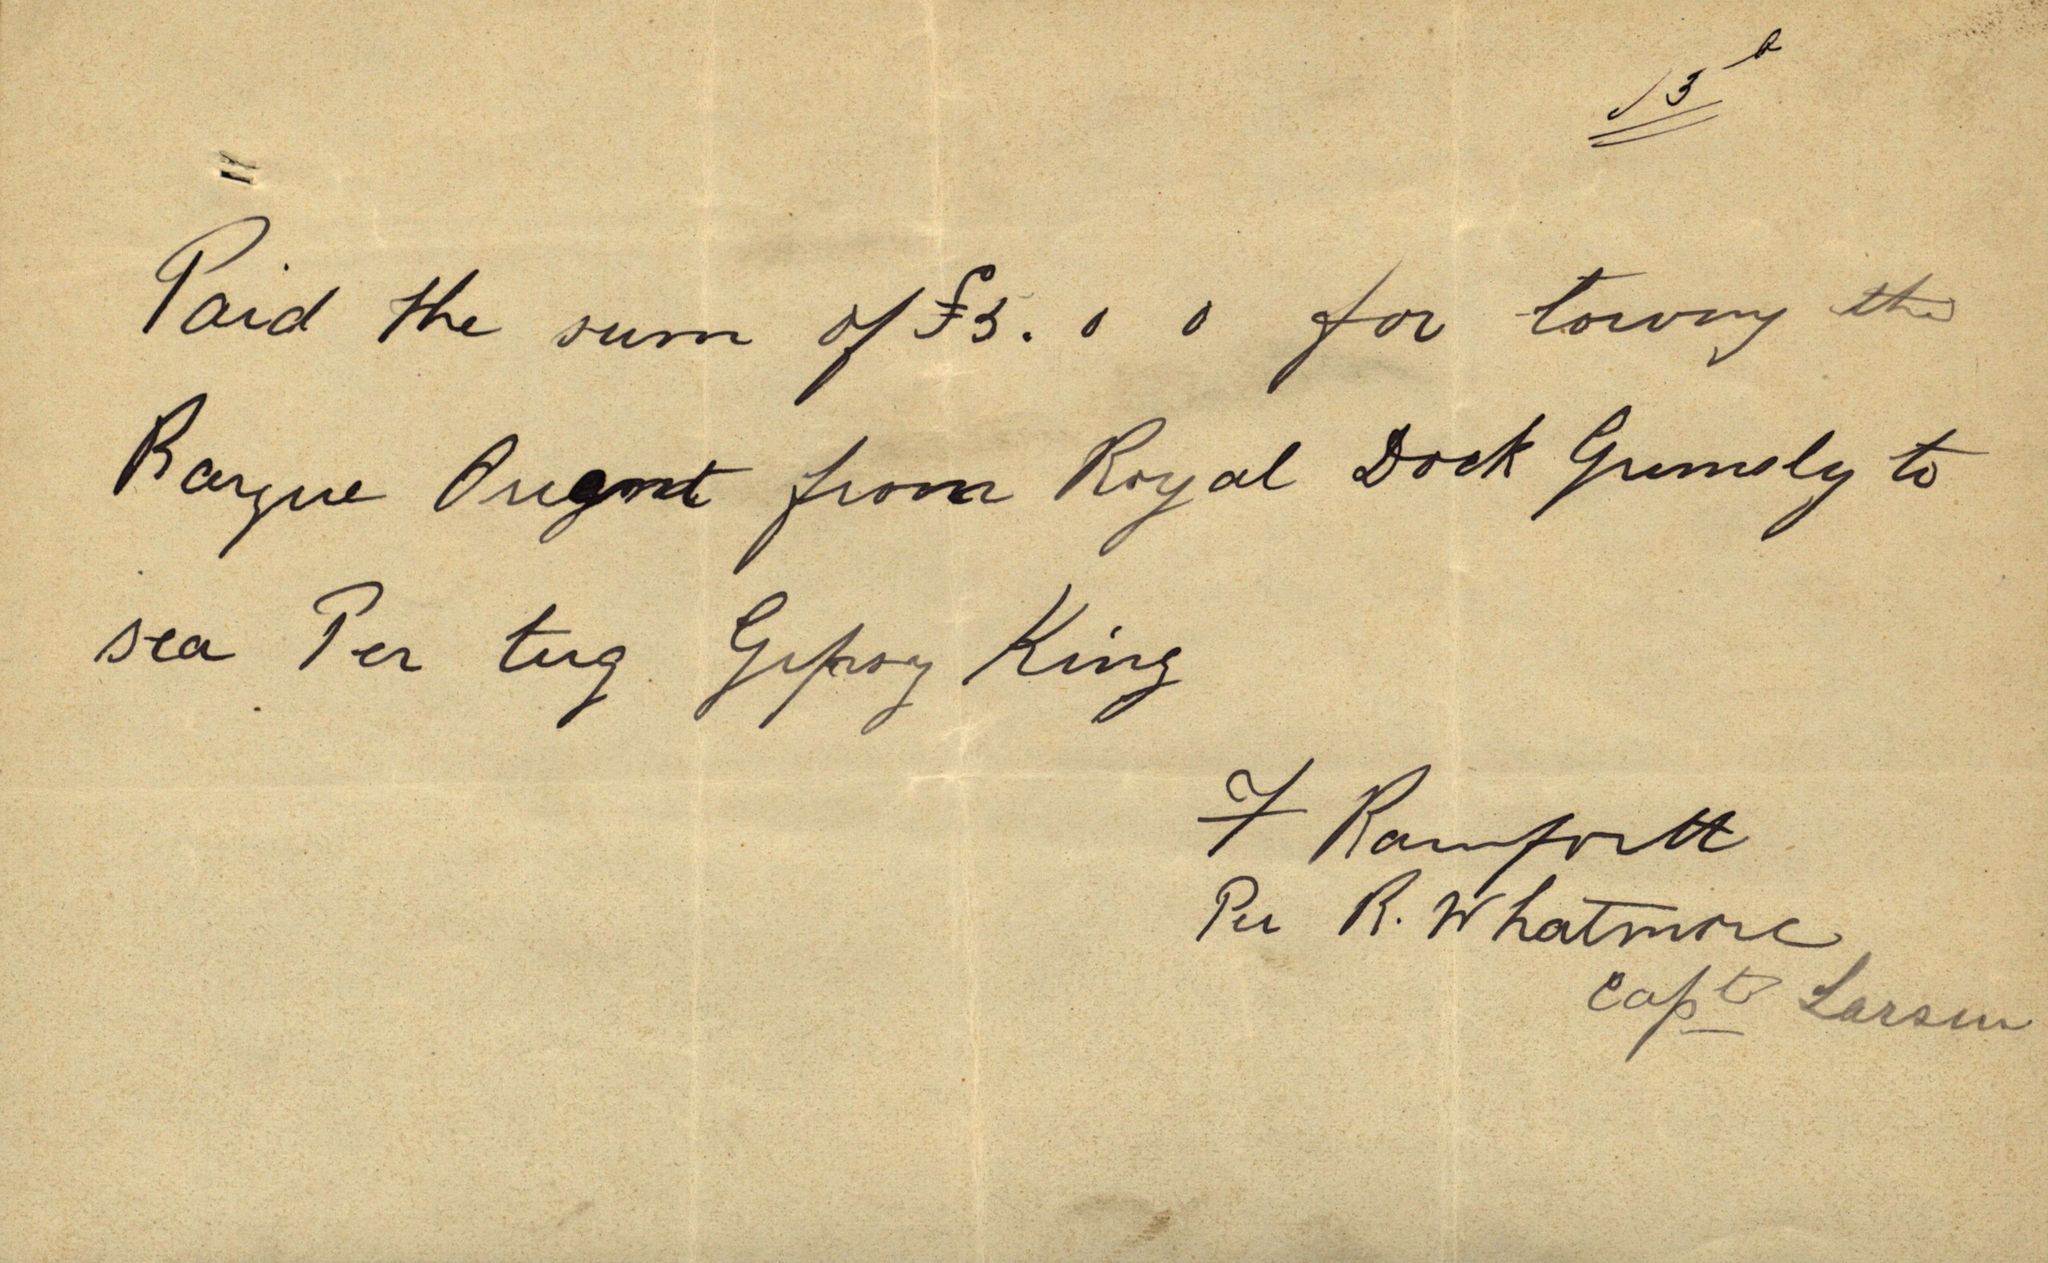 13
Paid the sum of £5. 0 0 for towing the
Barque from Royal Dock Grimsby to
sea Per tug Gipsy King
F
Per R. Whatmore
Capt Larsen